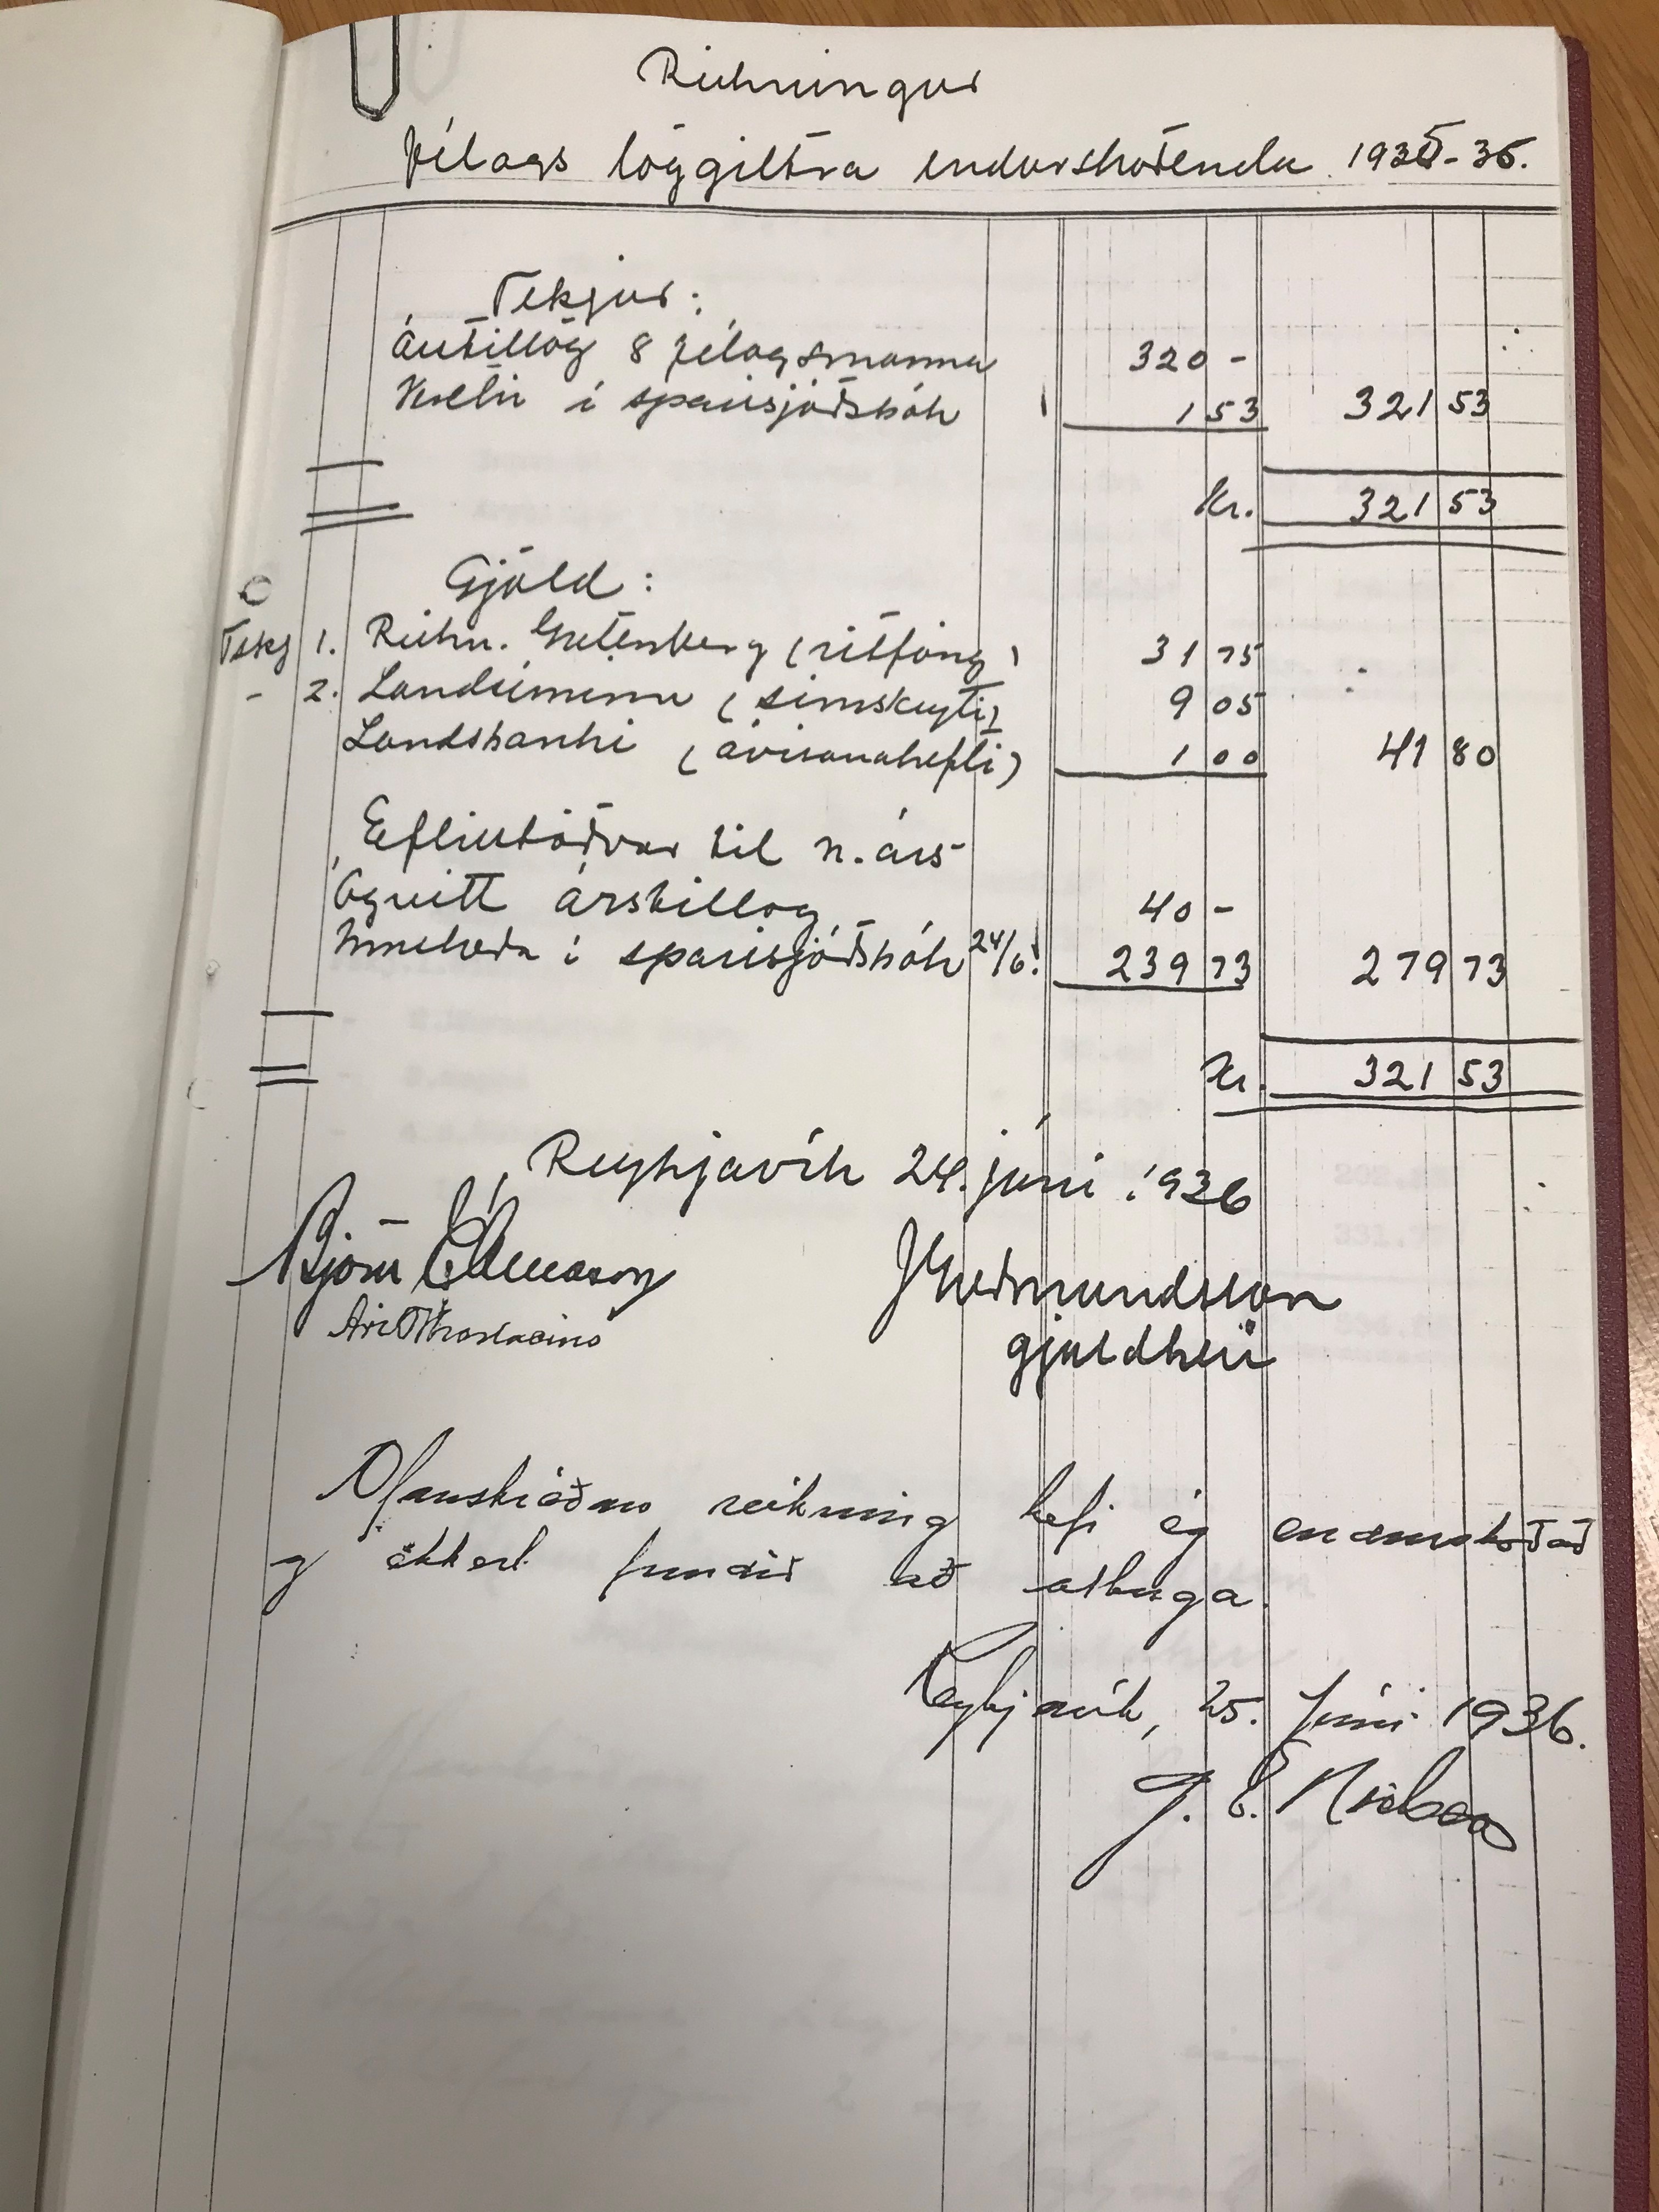 Reikningur
Félags löggiltra endurskoðenda 1935-36.
Tekjur:
Árstillög 8 félagsmanna 320 -
Vextir í sparisjóðsbók 1 53 321 53
Kr. 321 53
Gjöld:
Fskj 1. Reikn. Gutenberg (ritföng) 31 75
- 2. Landsíminn (símskeyti) 9 05
Landsbanki (ávísanahefti) 1 00 41 80
Eftirstöðvar til n. árs
Ógreitt árstillag 40 -
Innstæða í sparisjóðsbók 24/6. 239 73 279 73
Kr. 321 53
Reykjavík 24. júní 1936
Björn E. Árnason JGuðmundsson
Ari Ó Thorlacius gjaldkeri
Ofanskráðan reikning hefi ég endurskoðað
og ekkert fundið að athuga.
Reykjavík, 25. júní 1936.
N. E. Nielsen